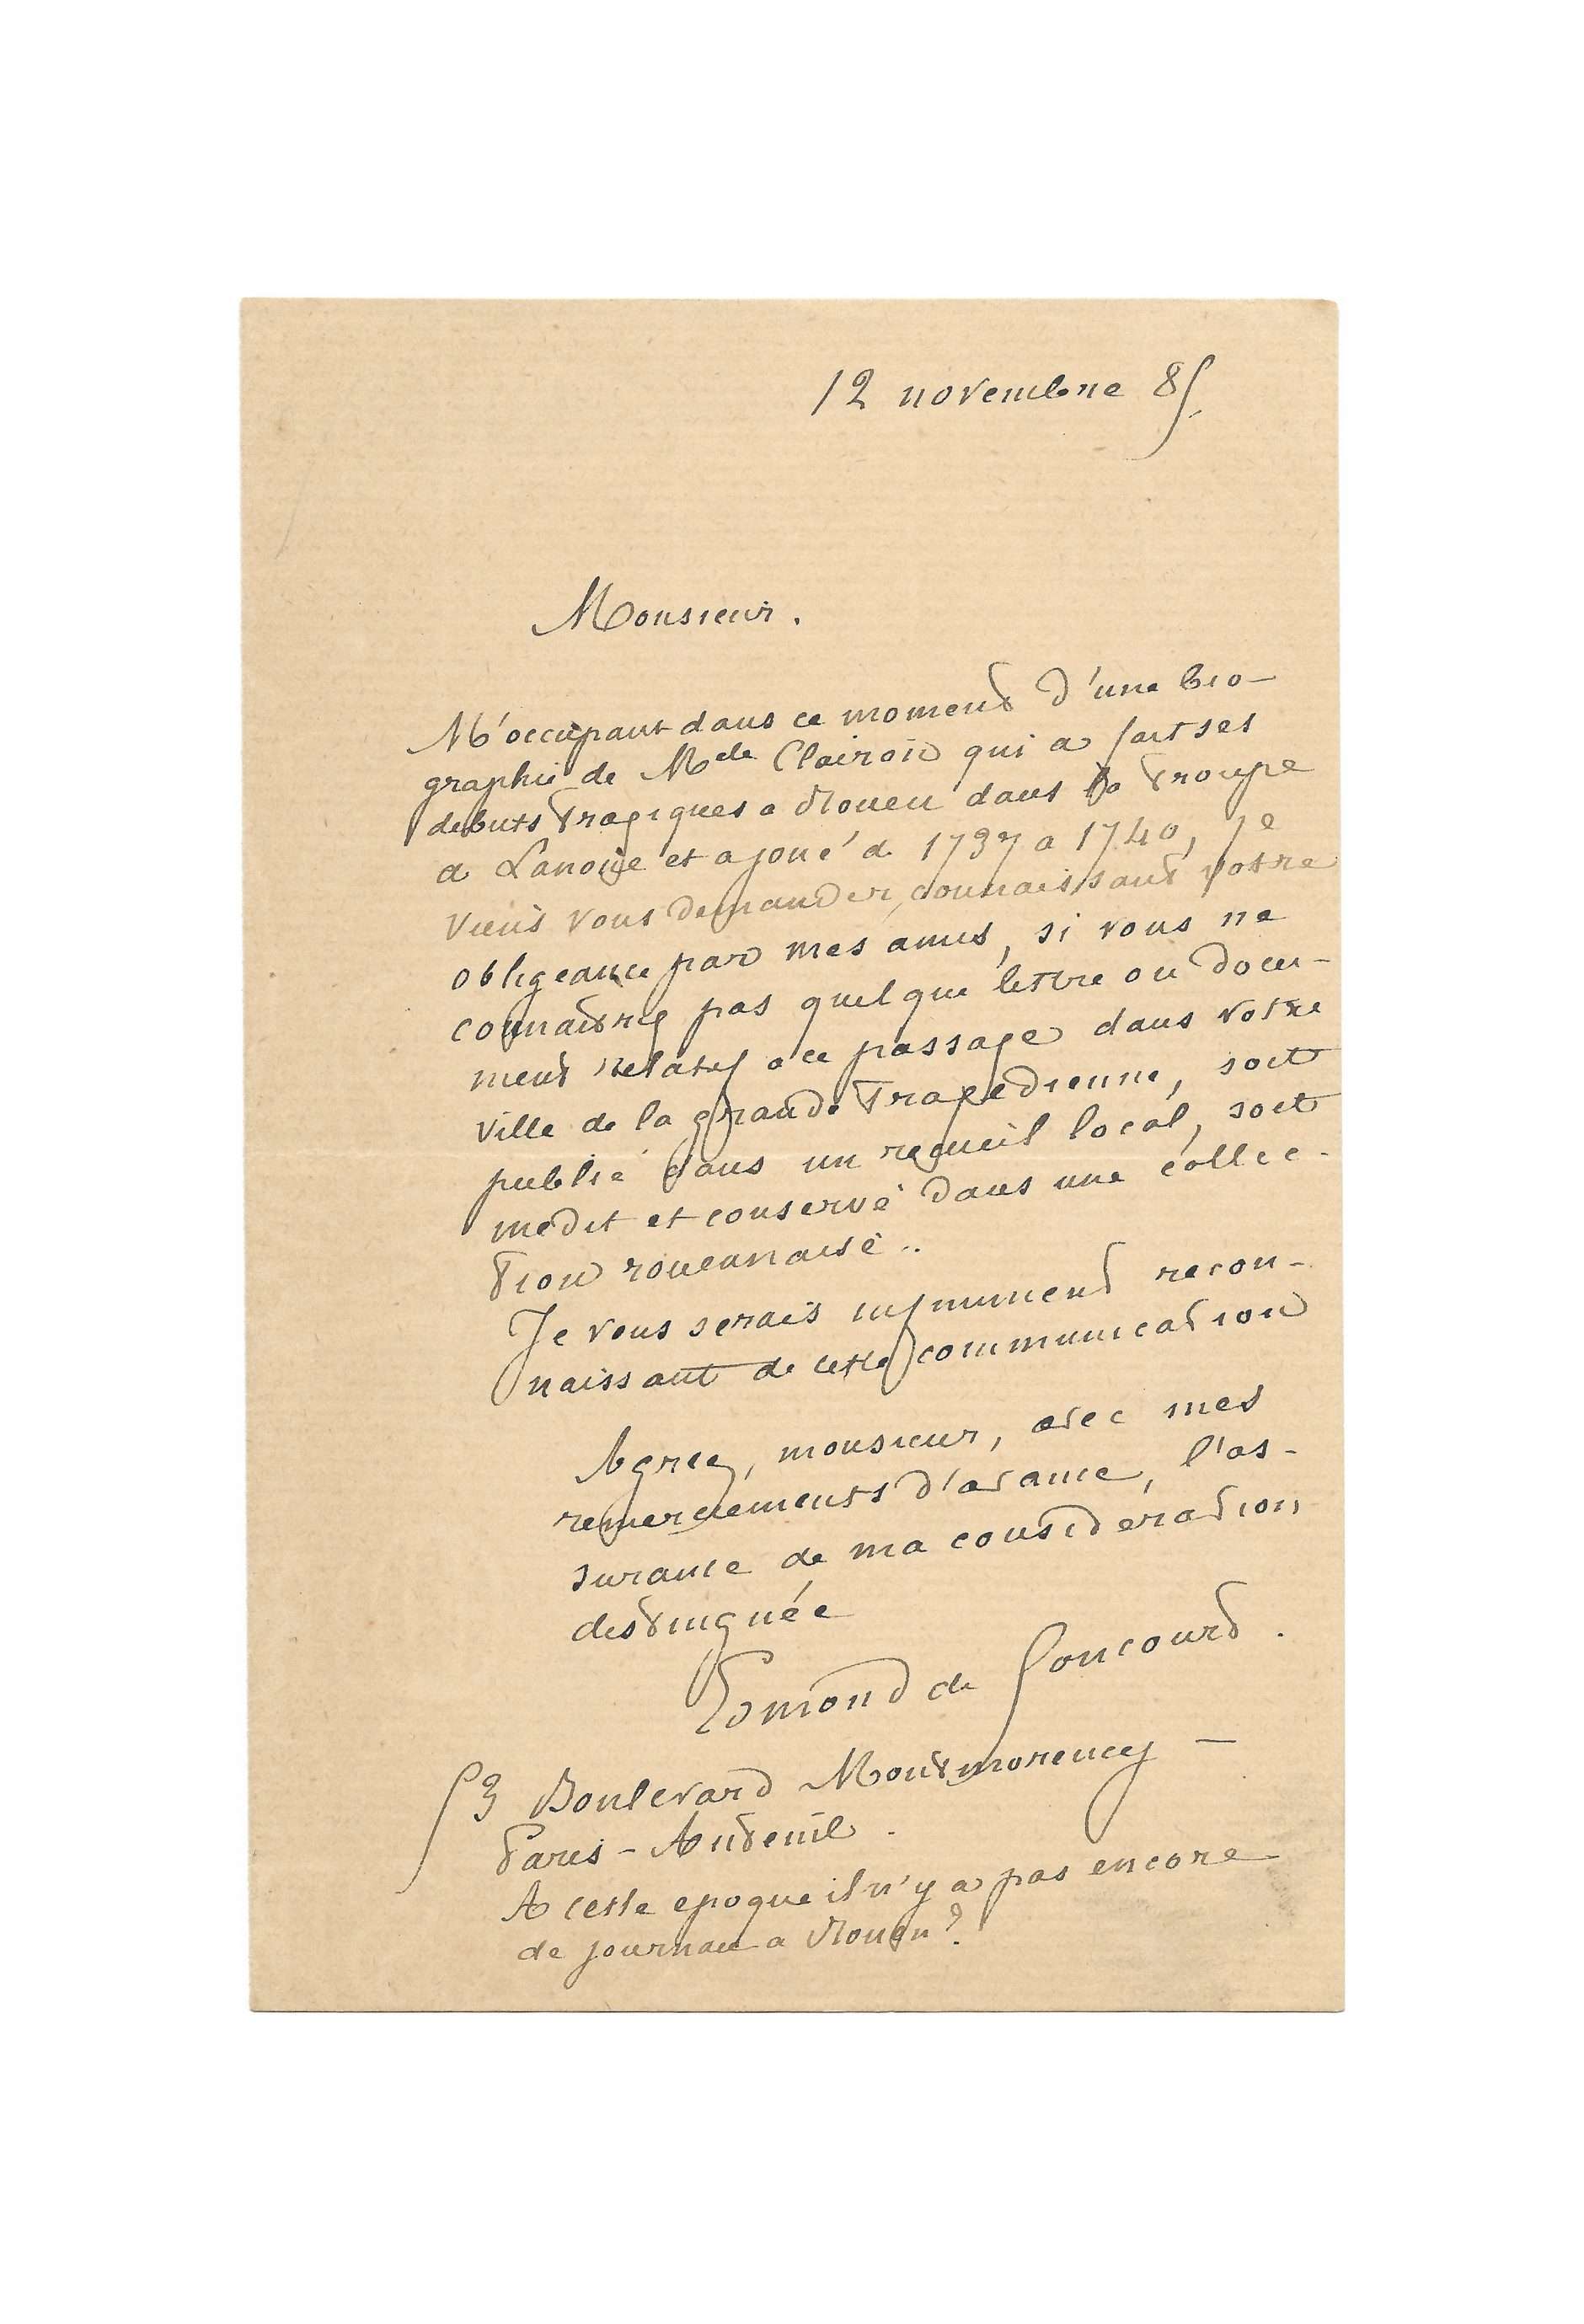 12 novembre 85.
Monsieur.
M'occupant dans ce moment d'une bio-
graphie de Mde Clairon qui a fait ses
debuts tragiques a Rouen dans la troupe
a Lanoue et a joué d 1737 a 1740, je
viens vous demander, connaissant votre
obligeance par mes amis, si vous ne
connaitriez pas quelque lettre ou docu-
ment relatif a ce passage dans votre
ville de la grande tragedienne, soit
publié dans un recueil local, soit
inedit et conservé dans une collec-
tion rouennaise..
Je vous serais infiniment recon-
naissant de cette communication
Agreez, monsieur, avec mes
remerciements d'avance, l'as-
surance de ma consideration
distinguée
Edmond de Goncourt.
53 Boulevard Montmorency –
Paris – Auteuil.
A cette epoque il n'y a pas encore
de journau a Rouen?